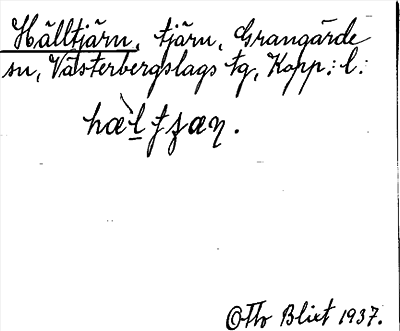 Hälltjärn, tjärn, Grangärde
sn, Västerbergslags tg, Kopp.: l.:
Otto Blixt 1937.